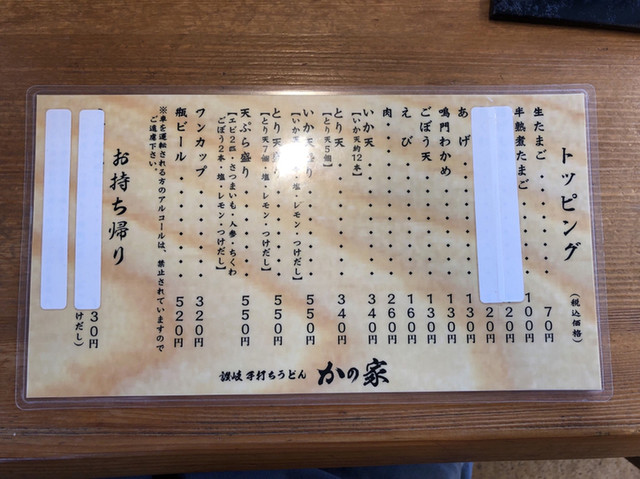 トッピング
(税込価格)
生たまご 70円
半熟煮たまご 100円
20円
20円
あげ 130円
鳴門わかめ 130円
ごぼう天 130円
えび 160円
肉 260円
いか天 340円
【いか天約12本】
とり天 340円
【とり天5個】
いか天盛り 550円
【いか天 塩・レモン・つけだし】
とり天盛り 550円
【とり天7個・塩・レモン・つけだし】
天ぷら盛り 550円
【エビ2匹・さつまいも・人参・ちくわ
ごぼう2本・塩・レモン・つけだし】
ワンカップ 320円
瓶ビール 520円
※車を運転される方のアルコールは、禁止されていますので
ご遠慮下さい。
お持ち帰り
30円
けだし)
讃岐 手打ちうどん かの家